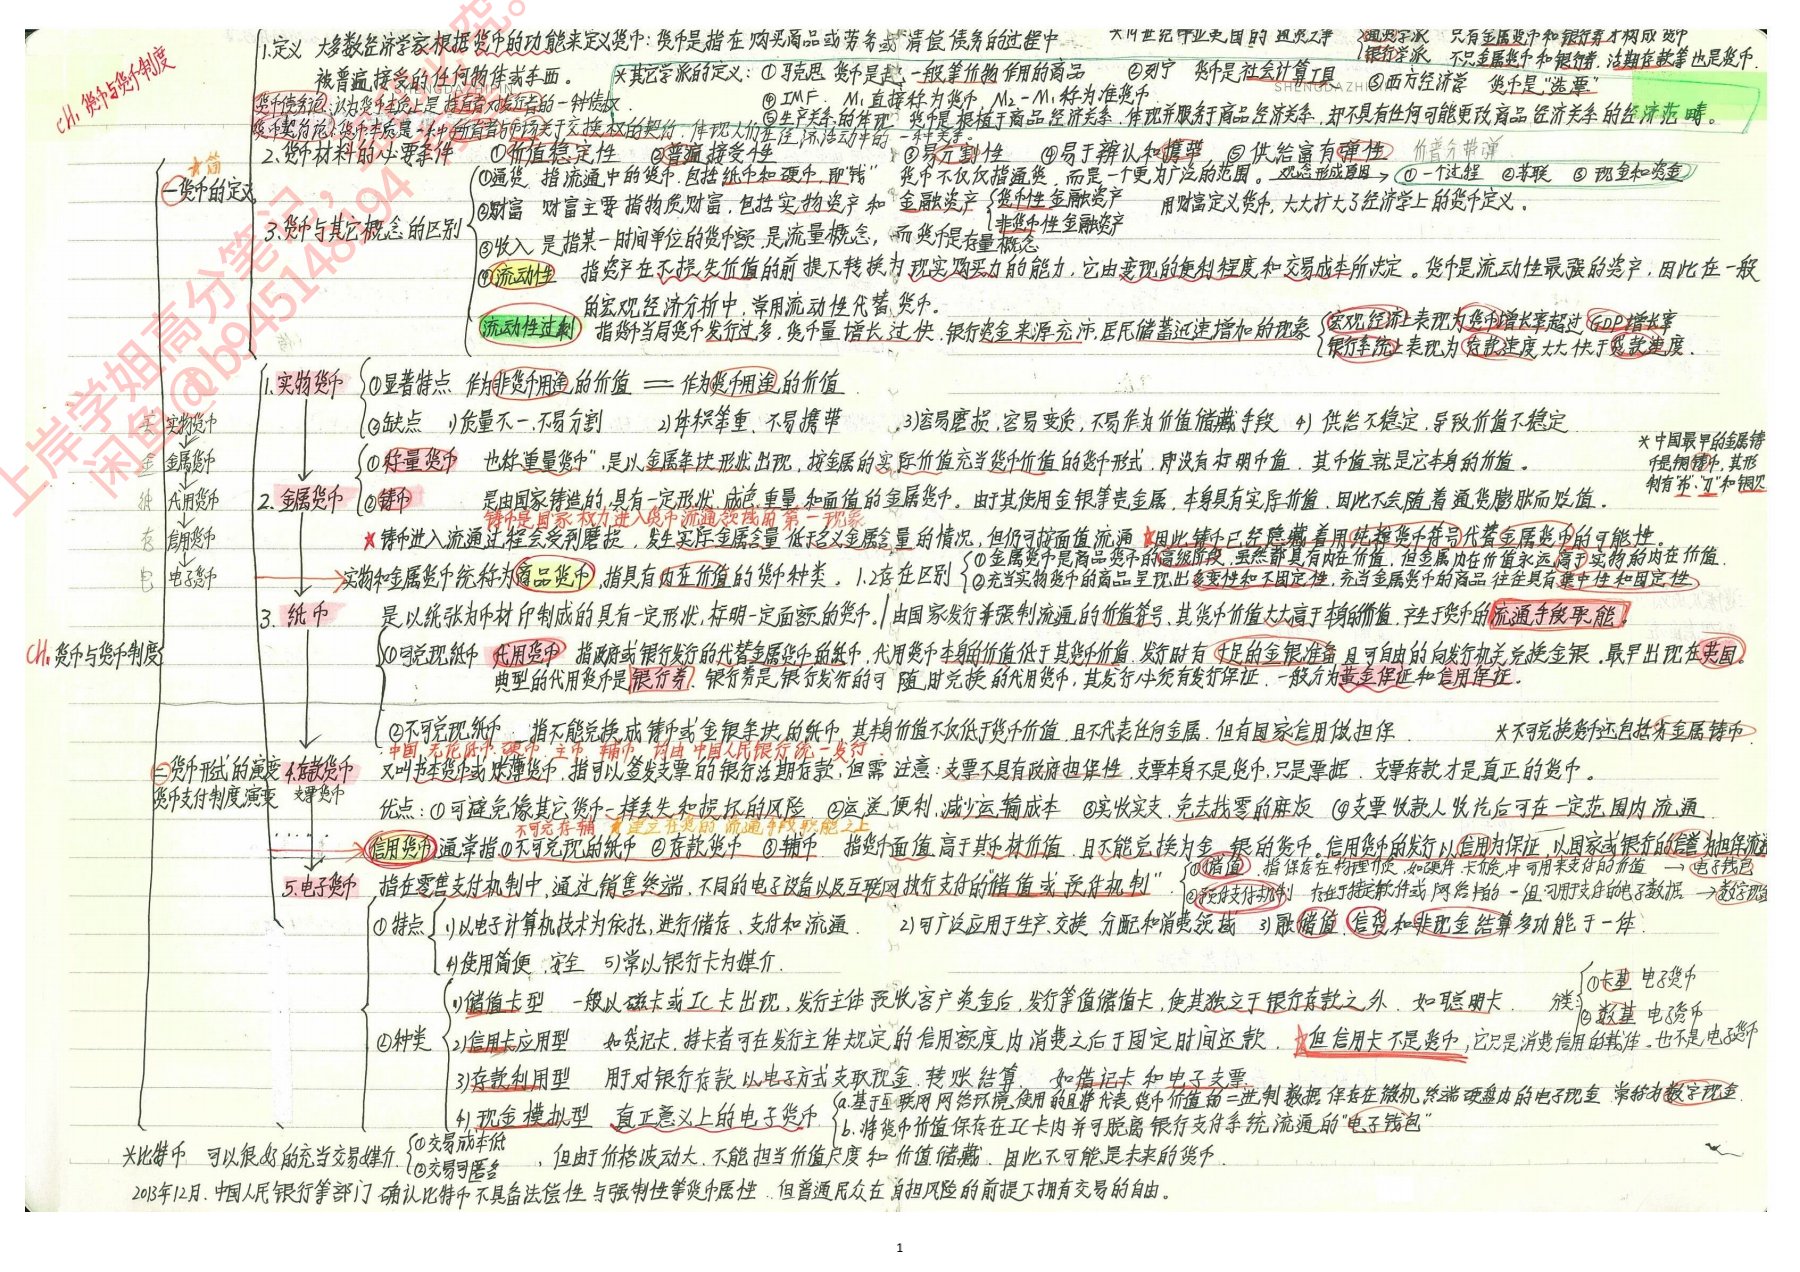 CH₁ 货币与货币制度
1.定义 大多数经济学家根据货币的功能来定义货币:货币是指在购买商品或劳务或清偿债务的过程中
被普遍接受的任何物体或东西。
通货学派 只有金属货币和银行券才构成货币
银行学派 不只金属货币和银行券,活期存款等也是货币.
*其它学派的定义:①马克思 货币是起一般等价物作用的商品 ②列宁 货币是社会计算工具 ③西方经济学 货币是“选票”
④IMF. M₁直接称为货币, M₂-M₁称为准货币
⑤生产关系的体现 货币是根植于商品经济关系、体现并服务于商品经济关系,却不具有任何可能更改商品经济关系的经济范畴。
货币债务论:认为货币本质上是持有者对发行者的一种债权
货币契约论:货币本质是一种所有者与市场关于交换权的契约,体现人们在经济活动中的一种关系.
*简
一货币的定义
2.货币材料的必要条件 ①价值稳定性 ②普遍接受性 ③易分割性 ④易于辨认和携带 ⑤供给富有弹性 价普分携弹
3.货币与其它概念的区别
①通货 指流通中的货币.包括纸币和硬币,即“钱” 货币不仅仅指通货,而是一个更为广泛的范围。 ①一个过程 ②苏联 ③现金和资金
②财富 财富主要指物质财富,包括实物资产和金融资产 货币性金融资产 用财富定义货币,大大扩大了经济学上的货币定义。
非货币性金融资产
③收入 是指某一时间单位的货币额.是流量概念,而货币是存量概念
④流动性 指资产在不损失价值的前提下转换为现实购买力的能力,它由变现的便利程度和交易成本所决定。货币是流动性最强的资产,因此在一般
的宏观经济分析中,常用流动性代替货币.
流动性过剩 指货币当局货币发行过多,货币量增长过快.银行资金来源充沛.居民储蓄迅速增加的现象
宏观经济上表现为货币增长率超过GDP增长率
银行系统上表现为存款速度大大快于贷款速度.
1.实物货币 ①显著特点 作为非货币用途的价值 = 作为货币用途的价值
②缺点 1)质量不一.不易分割 2)体积笨重.不易携带 3)容易磨损,容易变质,不易作为价值储藏手段 4)供给不稳定,导致价值不稳定
实 实物货币
金 金属货币
纸 代用货币
存 信用货币
电 电子货币
*中国最早的金属铸
币是铜铸币,其形
制有“布”.“刀”和铜贝
①称量货币 也称“重量货币”,是以金属条块形状出现,按金属的实际价值充当货币价值的货币形式,即没有标明币值.其币值就是它本身的价值。
2.金属货币 ②铸币 是由国家铸造的.具有一定形状.成色.重量和面值的金属货币.由于其使用金银等贵金属,本身具有实际价值.因此不会随着通货膨胀而贬值.
铸币是国家权力进入货币流通领域的第一现象
★铸币进入流通过程会受到磨损,发生实际金属含量低于名义金属含量的情况,但仍可按面值流通 ★因此铸币已经隐藏着用纯粹货币符号代替金属货币的可能性.
实物和金属货币统称为商品货币.指具有内在价值的货币种类. 1.2存在区别
①金属货币是商品货币的高级阶段,虽然都具有内在价值,但金属内在价值永远高于实物的内在价值.
②充当实物货币的商品呈现出多变性和不固定性,充当金属货币的商品往往具有集中性和固定性
3.纸币 是以纸张为币材印制成的具有一定形状,标明一定面额的货币./由国家发行并强制流通的价值符号,其货币价值大大高于本身的价值.产生于货币的流通手段职能.
CH₁货币与货币制度
①可兑现纸币 代用货币 指政府或银行发行的代替金属货币的纸币,代用货币本身的价值低于其货币价值.发行时有十足的金银准备.且可自由的向发行机关兑换金银.最早出现在英国.
典型的代用货币是银行券.银行券是银行发行的可随时兑换的代用货币,其发行必须有发行保证.一般分为黄金保证和信用保证.
②不可兑现纸币 指不能兑换成铸币或金银条块的纸币,其本身价值不仅低于货币价值.且不代表任何金属.但有国家信用做担保 *不可兑换货币还包括劣金属铸币
中国.无论纸币.硬币.主币.辅币.均由中国人民银行统一发行
二货币形式的演变
货币支付制度演变
4.存款货币 又叫书本货币或账簿货币,指可以签发支票的银行活期存款,但需注意:支票不具有政府担保性.支票本身不是货币.只是票据.支票存款才是真正的货币。
支票货币
优点:①可避免像其它货币一样丢失和损坏的风险 ②运送便利,减少运输成本 ③实收实支.免去找零的麻烦 ④支票收款人收讫后可在一定范围内流通
不可兑存辅 ★建立在货币的流通手段职能之上
信用货币 通常指①不可兑现的纸币 ②存款货币 ③辅币 指货币面值高于其币材价值.且不能兑换为金.银的货币.信用货币的发行以信用为保证,以国家或银行的信誉为担保流通
5.电子货币 指在零售支付机制中,通过销售终端,不同的电子设备以及互联网执行支付的“储值或预付机制”
①储值.指保存在物理介质.如硬件.卡介质中可用来支付的价值 → 电子钱包
②预付支付机制 存在于特定软件或网络中的一组可用于支付的电子数据 → 数字现金
①特点 1)以电子计算机技术为依托,进行储存.支付和流通 2)可广泛应用于生产.交换.分配和消费领域 3)融储值.信贷和非现金结算多功能于一体
4)使用简便.安全 5)常以银行卡为媒介.
②种类
1)储值卡型 一般以磁卡或IC卡出现,发行主体预收客户资金后,发行等值储值卡,使其独立于银行存款之外.如聪明卡. 分类 ①卡基 电子货币
②数基 电子货币
2)信用卡应用型 如贷记卡.持卡者可在发行主体规定的信用额度内消费之后于固定时间还款. ★但信用卡不是货币,它只是消费信用的载体.也不是电子货币
3)存款利用型 用于对银行存款以电子方式支取现金.转账结算 如借记卡和电子支票
4)现金模拟型 真正意义上的电子货币
a.基于互联网网络环境使用的且将代表货币价值的二进制数据保存在微机终端硬盘内的电子现金.常称为数字现金.
b.将货币价值保存在IC卡内并可脱离银行支付系统流通的“电子钱包”
*比特币 可以很好的充当交易媒介 ①交易成本低 ②交易可匿名 ,但由于价格波动大.不能担当价值尺度和价值储藏.因此不可能是未来的货币.
2013年12月.中国人民银行等部门确认比特币不具备法偿性与强制性等货币属性.但普通民众在自担风险的前提下拥有交易的自由。
上岸学姐高分笔记,
闲鱼@b945148194
SHENGDAZHIPIN
SHENGDAZHIPIN
1